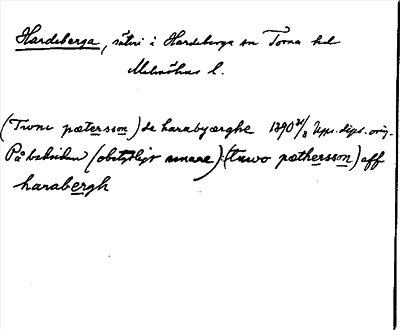 Hardeberga, säteri i Hardeberga sn Torna hd
Malmöhus l.
(Twoni pætersson) de harabyærghe 1390 31/8 Upps. dipl. orig.
På baksidan (obetydligt senare): (tuwo pæthersson) aff
harabergh